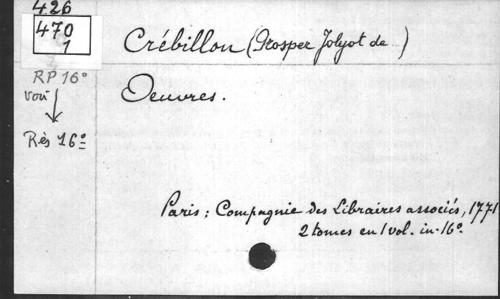 426
470
1
Crébillon (Prosper Jolyot de...)
RP 16°
voir
Rés 16°
Oeuvres.
Paris : Compagnie des Libraires associés, 1771
2 tomes en 1 vol. in-16°.